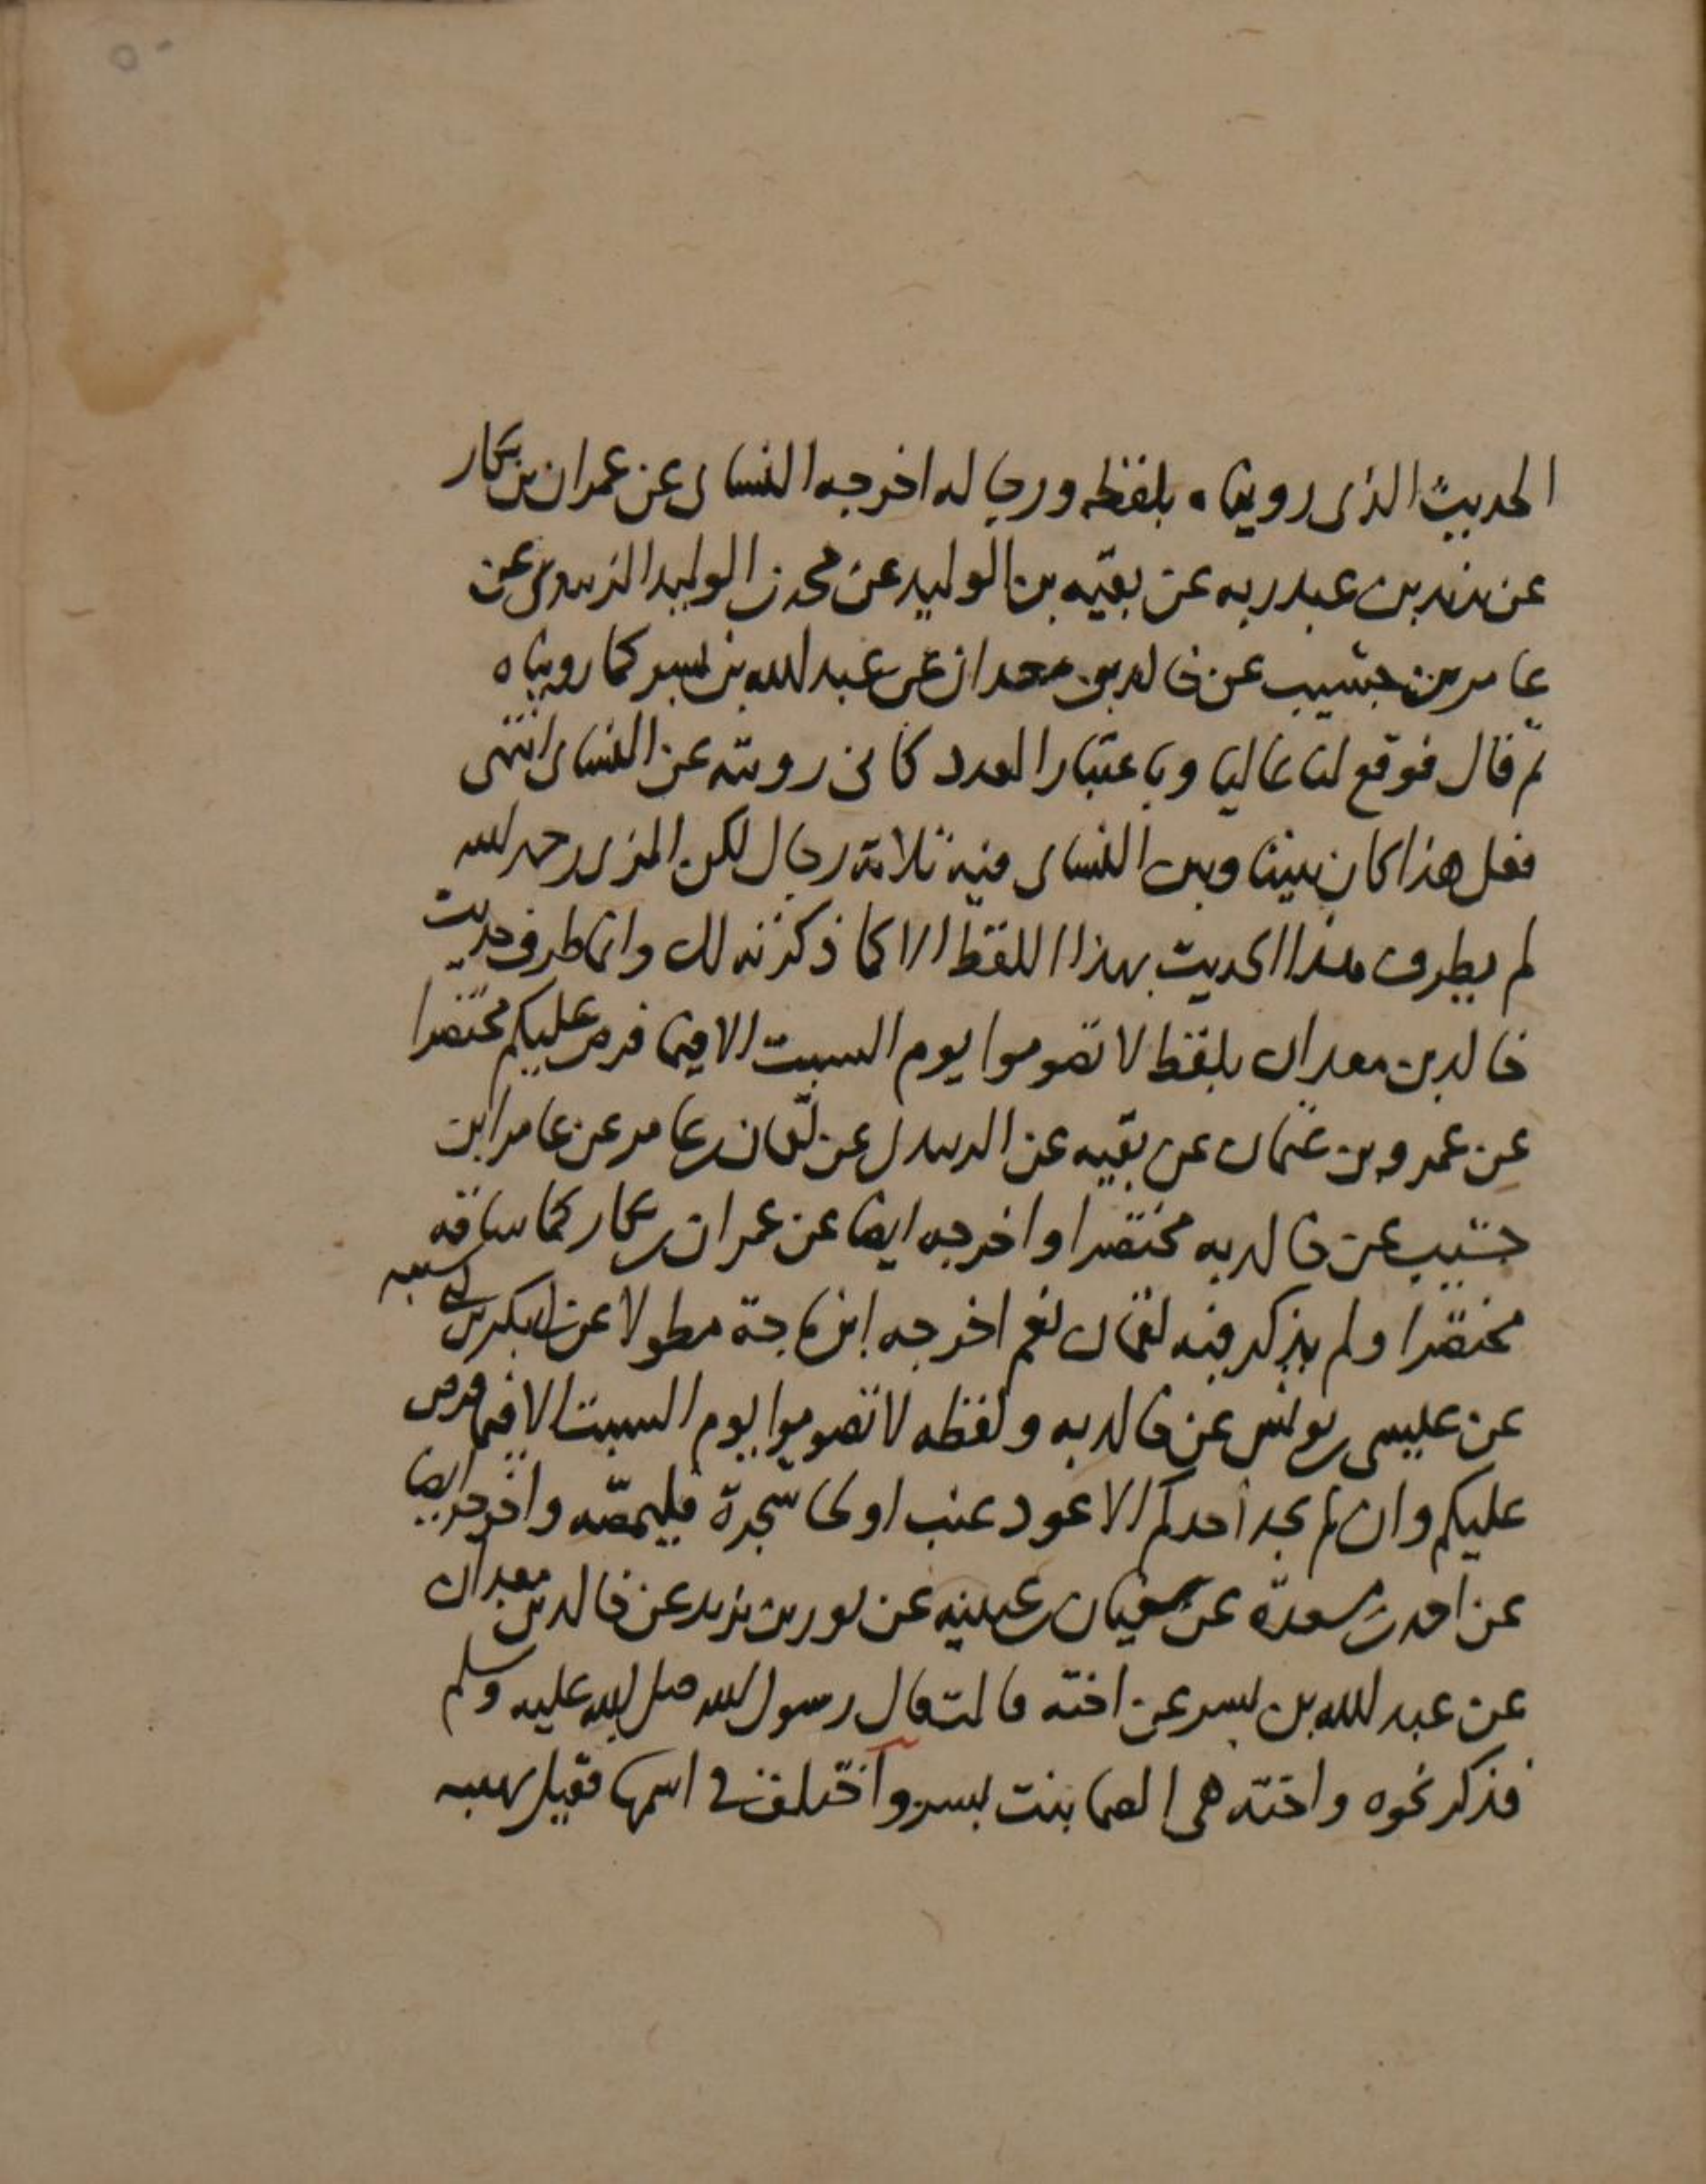 الحديث الذى رويناه بلفظه ورجاله اخرجه النساى عن عمران بن بكار
عن يزيد بن عبد ربه عن بقيه بن الوليد عن محمد بن الوليد الزبيدى عن
عامر بن جشيب عن خالد بن معدان عن عبد الله بن بسر كما رويناه
ثم قال فوقع لنا عاليا وباعتبار العدد كانى رويته عن النساى انتهى
فعلى هذا كان بيننا وبين النساى فيه ثلاثة رجال لكن المزى رحمه الله
لم يطرف هذا الحديث بهذا اللفظ الا كما ذكرته لك وانما طرف حديث
خالد بن معدان بلفظ لا تصوموا يوم السبت الا فيما فرض عليكم مختصرا
عن عمرو بن عثمان عن بقيه عن الزبيدى عن لقمان بن عامر عن عامر ابن
جشيب عن خالد به مختصرا واخرجه ايضا عن عمران بن بكار كما ساقه
مختصرا ولم يذكر فيه لقمان نعم اخرجه ابن ماجة مطولا عن ابى بكر بن ابى شيبه
عن عيسى بن يونس عن خالد به ولفظه لا تصوموا يوم السبت الا فيما فرض
عليكم وان لم يجد احدكم الا عود عنب او لحا شجرة فليمصه واخرجه ايضا
عن احمد بن سعدة عن سفيان بن عيينه عن ثور بن يزيد عن خالد بن معدان
عن عبد الله بن بسر عن اخته قالت قال رسول الله صلى الله عليه وسلم
فذكر نحوه واخته هى الصما بنت بسر واختلف فى اسمها فقيل بهيه